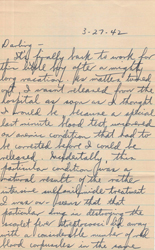 3-27-42
Darling —
It's finally back to work for
this little boy after a mighty
long vacation. As matters turned
out, I wasn't released from the
hospital as soon as I thought
I would be because a special
last minute blood test uncovered
an anemic condition that had to
be corrected before I could be
released. Incidentally, this
particular condition was a
natural of the rather
intensive sulfanilamide treatment
I was
that
particular drug in destroying the
away
with a considerable number of red
blood corpuscles in the same